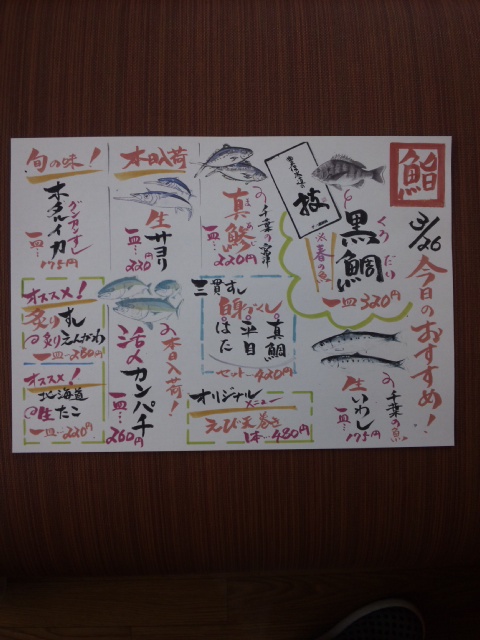 鮨
3/26
今日のおすすめ！
技
黒鯛
くろだい
春の魚
一皿320円
千葉の魚
生いわし
一皿175円
千葉の
真鰺
一皿220円
三貫すし
白身づくし
真鯛
平目
はた
セット420円
オリジナルメニュー
えび天巻き
1本…480円
本日入荷
生サヨリ
一皿…220円
本日入荷！
活〆カンパチ
一皿…260円
旬の味！
ホタルイカ
グンカンすし
一皿…175円
オススメ！
炙りすし
炙りえんがわ
一皿…260円
オススメ！
北海道
生たこ
一皿…220円